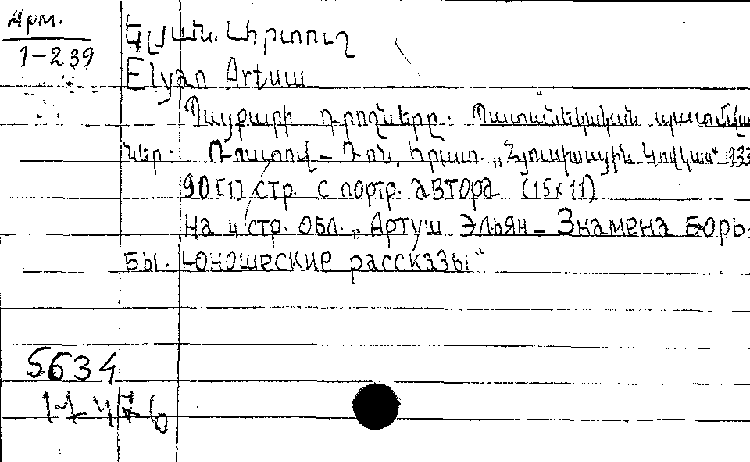 Арм.
1-239
Էլյան. Արտուշ
Elyan Artuш
Պայքարի դրոշները. Պատանեկական պատմվածք
ներ. Ռոստով – Դոն, հրատ. „Հյուսիսային Կովկաս" 933
90 [1] стр. с портр. автора (15×11)
На 4 стр. обл. „Артуш Эльян – Знамена борь-
бы. Юношеские рассказы"
5634